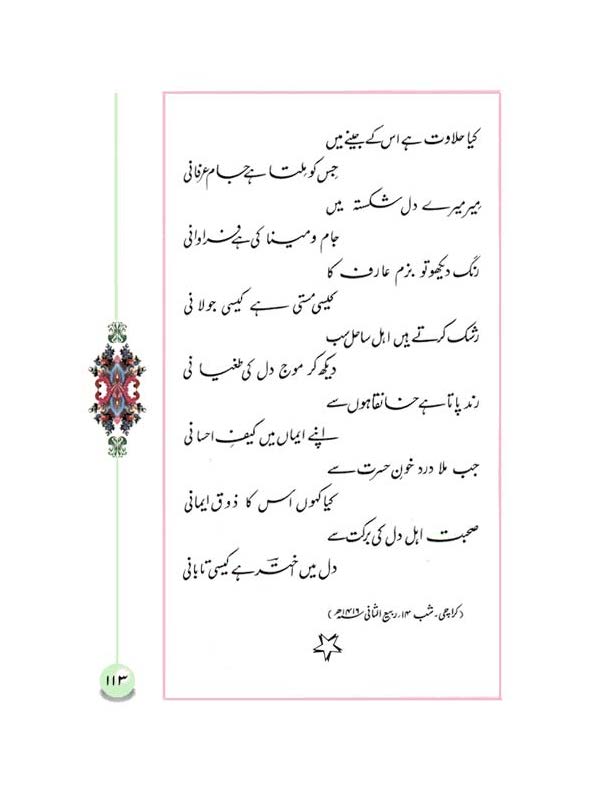 کیا حلاوت ہے اس کے جینے میں
جِس کو مِلتا ہے جام عرفانی
میر میرے دل شکستہ میں
جام و مینا کی ہے فراوانی
رنگ دیکھو تو بزم عارف کا
کیسی مستی ہے کیسی جولانی
رشک کرتے ہیں اہل ساحل سب
دیکھ کر موج دل کی طغیانی
رند پاتا ہے خانقاہوں سے
اپنے ایماں میں کیفِ احسانی
جب ملا درد خونِ حسرت سے
کیا کہوں اس کا ذوق ایمانی
صحبت اہل دل کی برکت سے
دل میں اختر ہے کیسی تابانی
(کراچی۔ شب ۱۴؍ ربیع الثانی ۱۴۱۶ھ)
۱۱۳